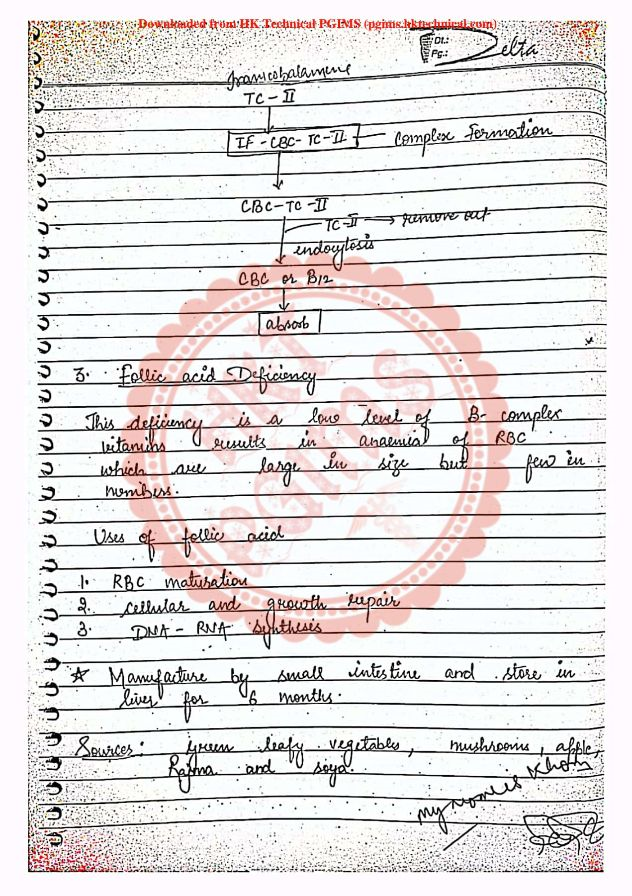 Downloaded from HK Technical PGIMS (pgims.hktechnical.com)
Dt.:
Pg.:
Delta
Transcobalamine
TC - II
IF - CBC - TC - II ← Complex Formation
CBC - TC - II
TC - II → remove out
endocytosis
CBC or B12
absorb
3. Follic acid Deficiency
This deficiency is a low level of B- complex
vitamins results in anaemia of RBC
which are large in size but few in
numbers.
Uses of follic acid
1. RBC maturation
2. cellular and growth repair
3. DNA - RNA synthesis
☆ Manufacture by small intestine and store in
liver for 6 months.
Sources: green leafy vegetables, mushrooms, apple,
Rajma and soya.
HKT
PGIMS